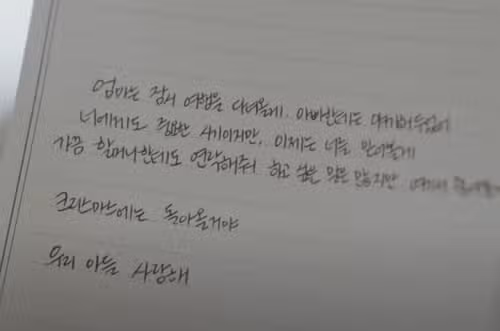 엄마는 잠시 여행을 다녀올게. 아빠한테도
너에게도 중요한 시기이지만, 이제는 너를 믿어볼게
가끔 할머니한테도 연락해줘 하고 싶은 말은 많지만
크리스마스에는 돌아올거야
우리 아들 사랑해